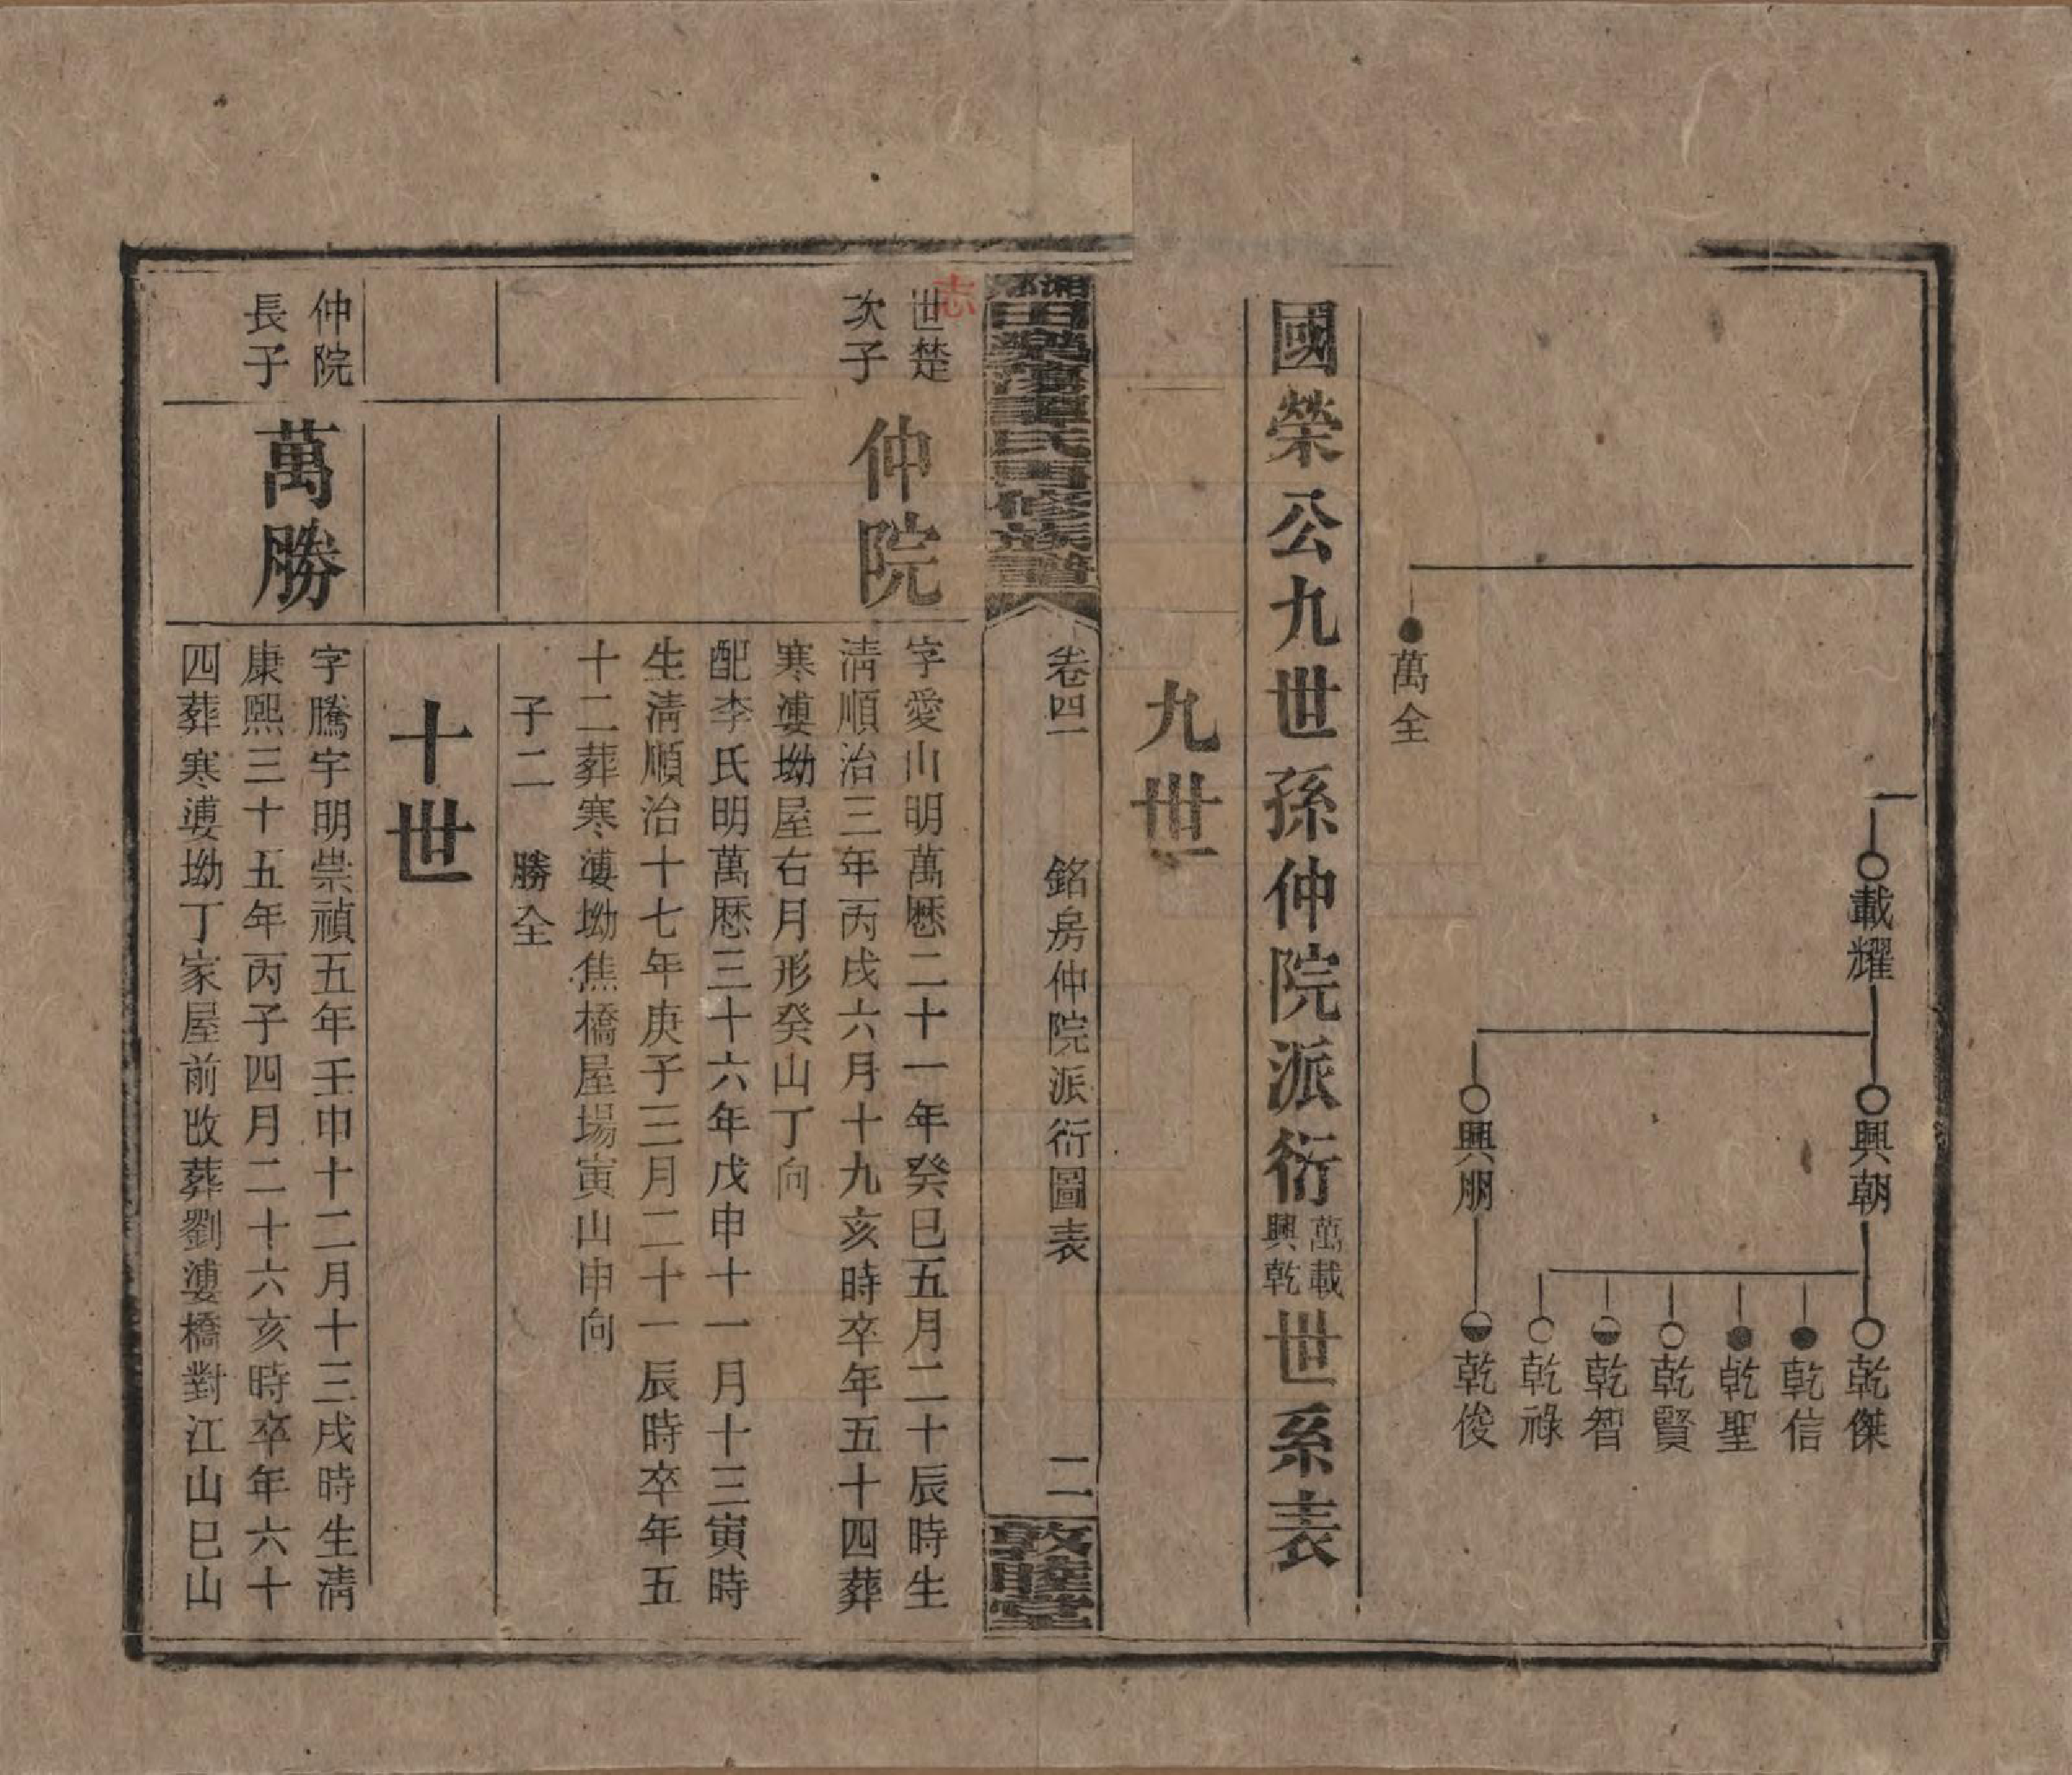 載耀
興朝
興朋
乾傑
乾信
乾聖
乾賢
乾智
乾祿
乾俊
萬全
國榮公九世孫仲院派衍萬載興乾世系表
九世
湘鄉田樂蕩譚氏四修族譜
卷四一
銘房仲院派衍圖表
二
敦睦堂
志
世楚
次子
仲院
字愛山明萬曆二十一年癸巳五月二十辰時生
清順治三年丙戌六月十九亥時卒年五十四葬
寒漊坳屋右月形癸山丁向
配李氏明萬曆三十六年戊申十一月十三寅時
生清順治十七年庚子三月二十一辰時卒年五
十二葬寒漊坳焦橋屋場寅山申向
子二 勝全
十世
仲院
長子
萬勝
字騰宇明崇禎五年壬申十二月十三戌時生清
康熙三十五年丙子四月二十六亥時卒年六十
四葬寒漊坳丁家屋前改葬劉漊橋對江山巳山